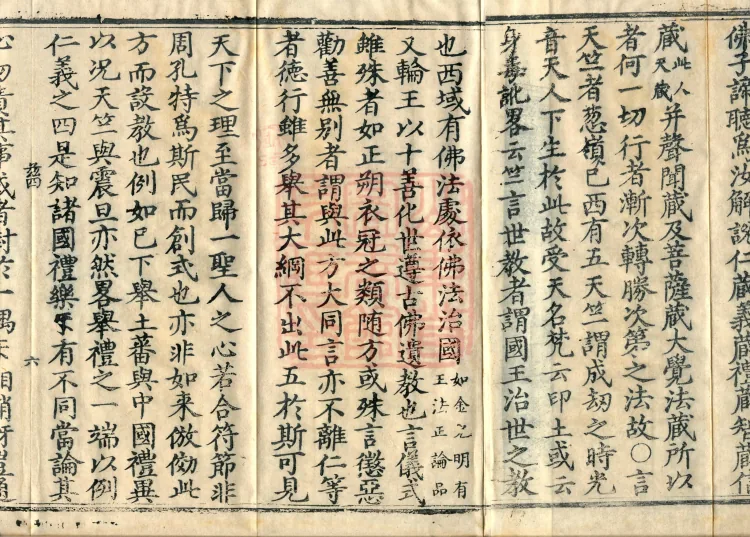 佛子諦聽為汝解說仁藏義藏禮藏知藏信
藏此人天藏并聲聞藏及菩薩藏大覺法藏所以
者何一切行者漸次轉勝次第之法故〇言
天竺者葱嶺巳西有五天竺謂成刼之時光
音天人下生於此故受天名梵云印土或云
身毒訛畧云竺言世教者謂國王治世之教
也西域有佛法處依佛法治國如金光明有王法正論品
又輪王以十善化世遵古佛遺教也言儀式
雖殊者如正朔衣冠之類随方或殊言懲惡
勸善無别者謂與此方大同言亦不離仁等
者徳行雖多舉其大綱不出此五於斯可見
天下之理至當歸一聖人之心若合符節非
周孔特為斯民而創式也亦非如来倣効此
方而設教也例如巳下舉土蕃與中國禮異
以况天竺與震旦亦然畧舉禮之一端以例
仁義之四是知諸國禮樂㝎有不同當論其
六